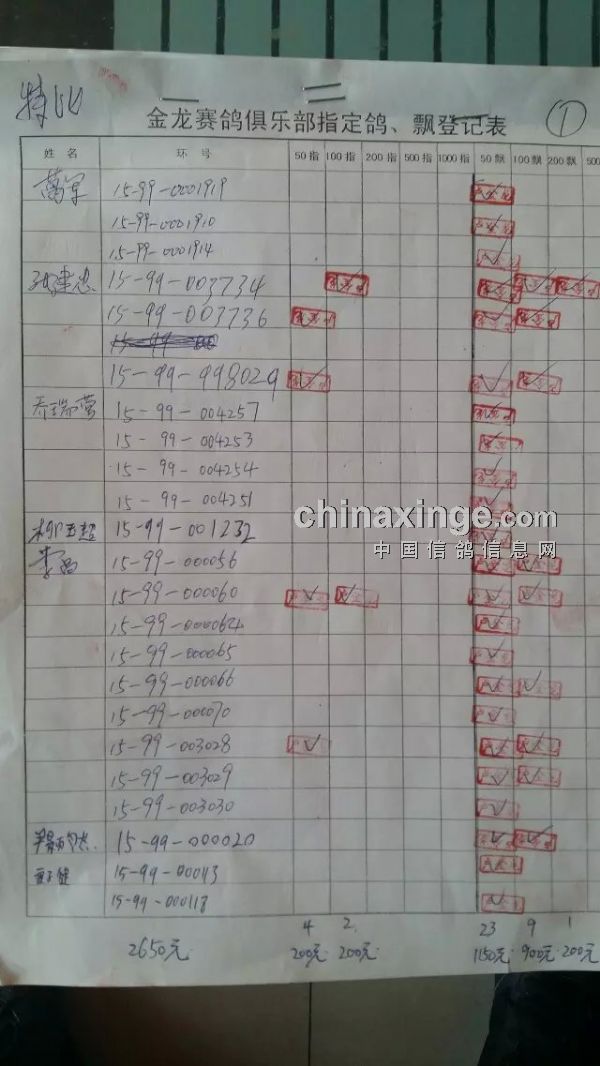 特比
金龙赛鸽俱乐部指定鸽、飘登记表 ①
姓名 环号 50指 100指 200指 500指 1000指 50飘 100飘 200飘 500
15-99-0001919
15-99-0001910
15-99-0001914
15-99-003734
15-99-003736
15-99-998029
15-99-004257
15-99-004253
15-99-004254
15-99-004251
15-99-001232
15-99-000056
15-99-000060
15-99-0000624
15-99-000065
15-99-000066
15-99-000070
15-99-003028
15-99-003029
15-99-003030
15-99-000020
15-99-00043
15-99-000118
4 2 23 9 1
2650元 200元 200元 1150元 900元 200元
chinaxinge.com
中国信鸽信息网